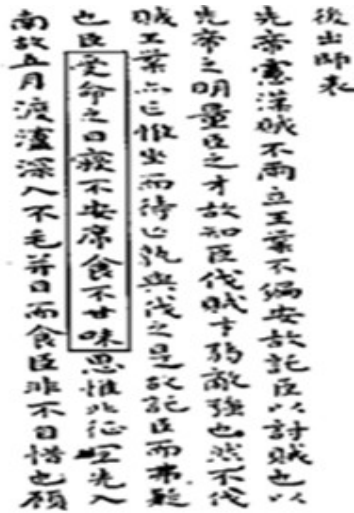 後出師表
先帝慮漢賊不兩立王業不偏安故託臣以討賊也以
先帝之明量臣之才故知臣伐賊才弱敵強也然不伐
賊王業亦亡惟坐而待亡孰與伐之是故託臣而弗疑
也臣受命之日寢不安席食不甘味思惟北征宜先入
南故五月渡瀘深入不毛并日而食臣非不自惜也顧